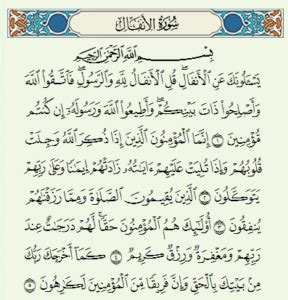 سُورَةُ الأَنفَالِ
بِسْمِ اللَّهِ الرَّحْمَٰنِ الرَّحِيمِ
يَسْـَٔلُونَكَ عَنِ ٱلْأَنفَالِ ۖ قُلِ ٱلْأَنفَالُ لِلَّهِ وَٱلرَّسُولِ ۖ فَٱتَّقُوا۟ ٱللَّهَ
وَأَصْلِحُوا۟ ذَاتَ بَيْنِكُمْ ۖ وَأَطِيعُوا۟ ٱللَّهَ وَرَسُولَهُۥٓ إِن كُنتُم
مُّؤْمِنِينَ ١ إِنَّمَا ٱلْمُؤْمِنُونَ ٱلَّذِينَ إِذَا ذُكِرَ ٱللَّهُ وَجِلَتْ
قُلُوبُهُمْ وَإِذَا تُلِيَتْ عَلَيْهِمْ ءَايَٰتُهُۥ زَادَتْهُمْ إِيمَٰنًا وَعَلَىٰ رَبِّهِمْ
يَتَوَكَّلُونَ ٢ ٱلَّذِينَ يُقِيمُونَ ٱلصَّلَوٰةَ وَمِمَّا رَزَقْنَٰهُمْ
يُنفِقُونَ ٣ أُو۟لَٰٓئِكَ هُمُ ٱلْمُؤْمِنُونَ حَقًّا ۚ لَّهُمْ دَرَجَٰتٌ عِندَ
رَبِّهِمْ وَمَغْفِرَةٌ وَرِزْقٌ كَرِيمٌ ٤ كَمَآ أَخْرَجَكَ رَبُّكَ
مِنۢ بَيْتِكَ بِٱلْحَقِّ وَإِنَّ فَرِيقًا مِّنَ ٱلْمُؤْمِنِينَ لَكَٰرِهُونَ ٥